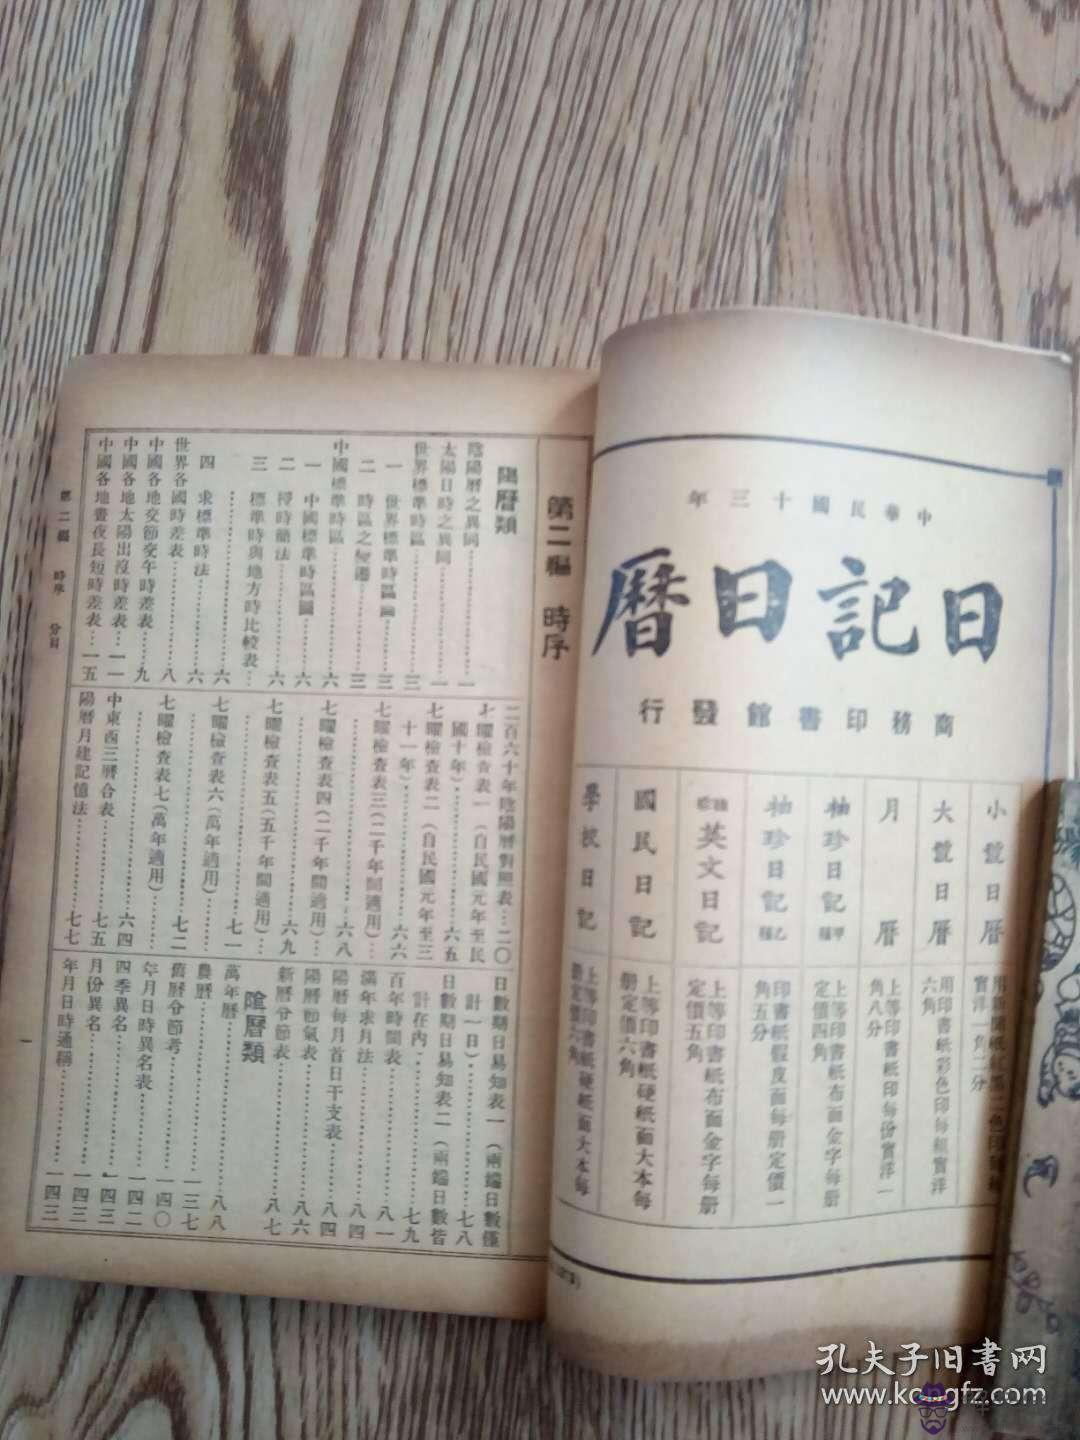 中華民國十三年
日記日曆
商務印書館發行
小號日曆
大號日曆
用印書紙彩色印每組實洋六角
月曆
上等印書紙印每份實洋一角八分
袖珍日記 甲種
上等印書紙布面金字每册定價四角
袖珍日記 乙種
印書紙假皮面每册定價一角五分
英文日記
上等印書紙布面金字每册定價五角
國民日記
上等印書紙硬紙面大本每册定價六角
學校日記
上等印書紙硬紙面大本每册定價六角
第二編 時序
陽曆類
陰陽曆之異同……一
太陽日時之異同……一
世界標準時區……三
一 世界標準時區圖……三
二 時區之變遷……三
中國標準時區……六
一 中國標準時區圖……六
二 授時簡法……六
三 標準時與地方時比較表……六
四 求標準時法……六
世界各國時差表……八
中國各地交節交午時差表……九
中國各地太陽出沒時差表……一一
中國各地晝夜長短時差表……一五
二百六十年陰陽曆對照表……二〇
七曜檢查表一（自民國元年至民國十年）……六五
七曜檢查表二（自民國元年至三十一年）……六六
七曜檢查表三（二千年間適用）……六八
七曜檢查表四（二千年間適用）……六九
七曜檢查表五（五千年間適用）……七一
七曜檢查表六（萬年適用）……七二
七曜檢查表七（萬年適用）……六四
中東西三曆合表……七五
陽曆月建記憶法……七七
日數期日易知表一（兩端日數僅計一日）……七八
日數期日易知表二（兩端日數皆計在內）……七九
百年時間表……八一
滿年求月法……八四
陽曆每月首日干支表……八四
陽曆節氣表……八六
新曆分節表……八七
陰曆類
萬年曆……八八
農曆……一三七
舊曆分節考……一四〇
年月日時異名表……一四二
四季異名……一四三
月份異名……一四三
年月日時通稱……一四三
第二編 時序 分目
一
孔夫子旧書网
www.kongfz.com